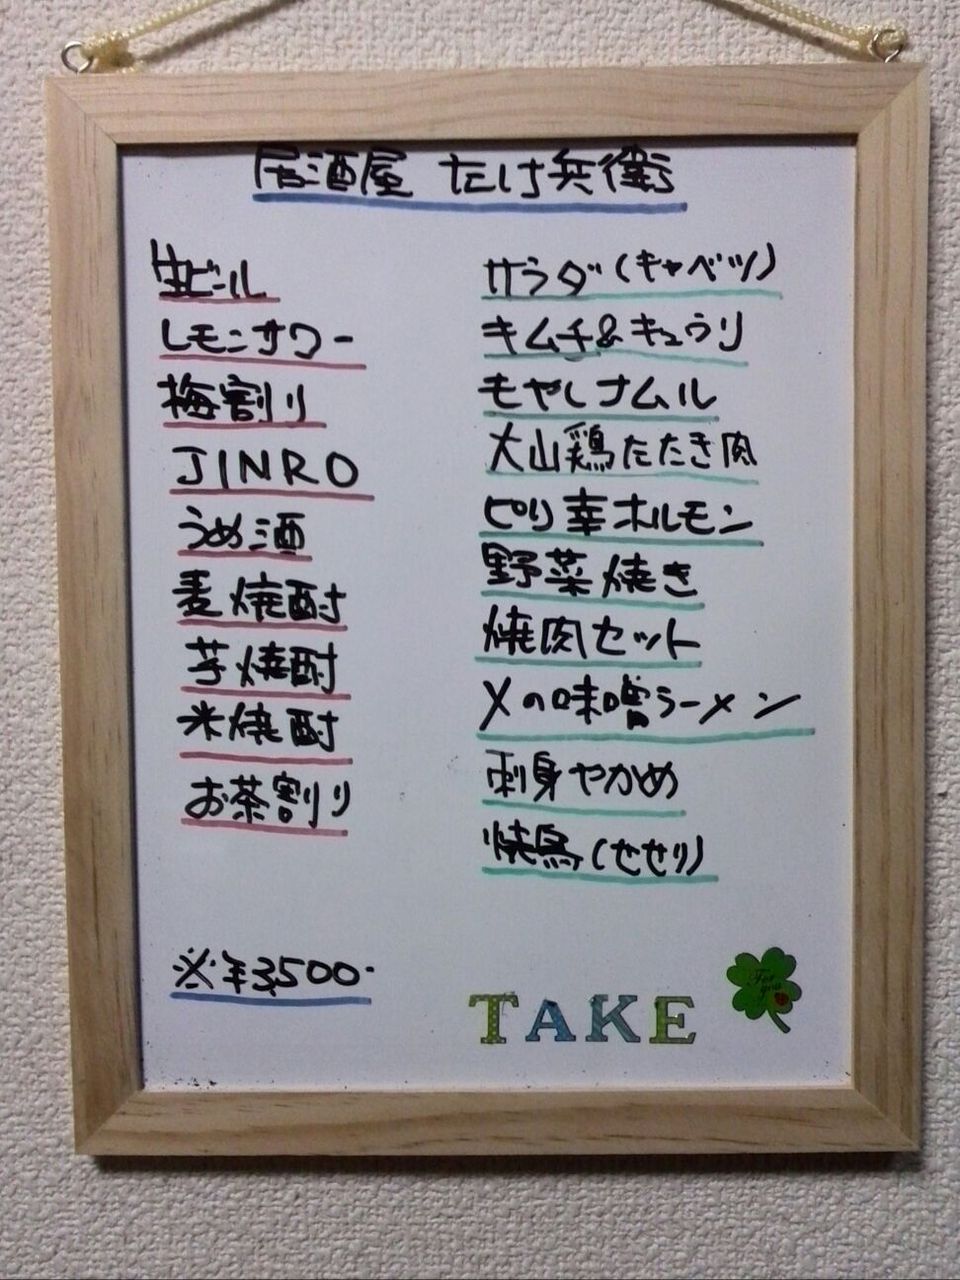 居酒屋 たけ兵衛
生ビール
レモンサワー
梅割り
JINRO
うめ酒
麦焼酎
芋焼酎
米焼酎
お茶割り
※¥3,500-
サラダ(キャベツ)
キムチ&キュウリ
もやしナムル
大山鶏たたき肉
ピリ辛ホルモン
野菜焼き
焼肉セット
〆の味噌ラーメン
刺身やかめ
焼鳥(せせり)
TAKE
For
you